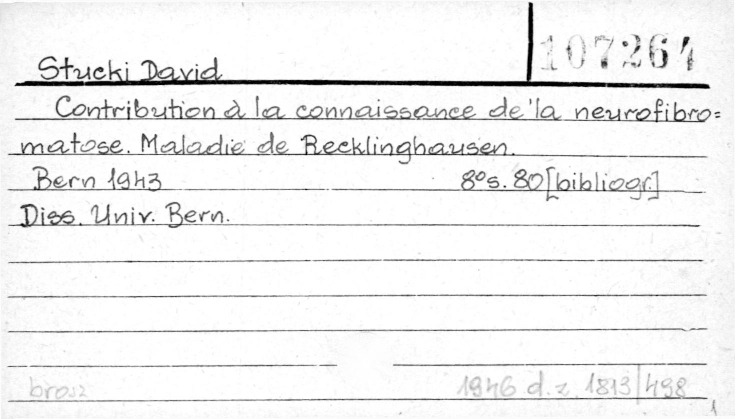 107264
Stucki David
Contribution à la connaissance de la neurofibro=
matose. Maladie de Recklinghausen.
Bern 1943 8°s. 80[bibliogr.]
Diss. Univ. Bern.
brosz 1946 d. z. 1813/498
1